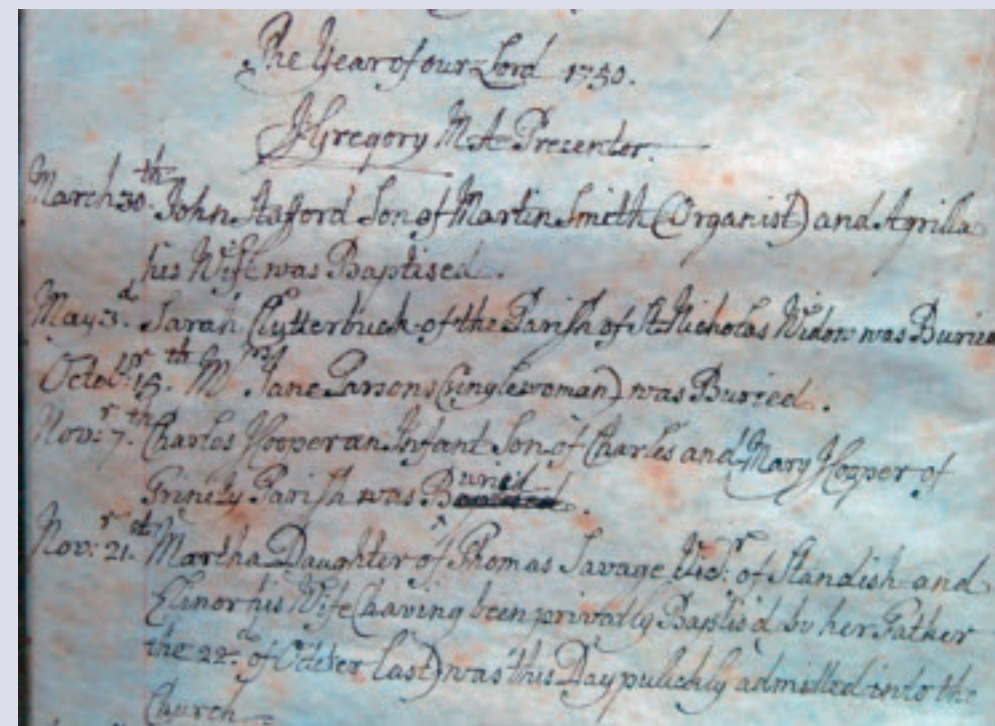 The Year of our Lord 1750.
J Gregory M A Precentor.
March 30.th John Stafford Son of Martin Smith (Organist) and Agrilla
his Wife was Baptised.
May 3.d Sarah Clutterbuck of the Parish of St Nicholas Widow was Buried
Octobr. 15.th Mrs Jane Parsons (singlewoman) was Buried.
Novr: 7.th Charles Hooper an Infant Son of Charles and Mary Hooper of
Trinity Parish was Buried.
Novr: 21.st Martha Daughter of Thomas Savage Vicr. of Standish and
Elinor his Wife (having been privatly Baptis'd by her Father
the 22.d of Octeber last) was this Day publickly admitted into the
Church